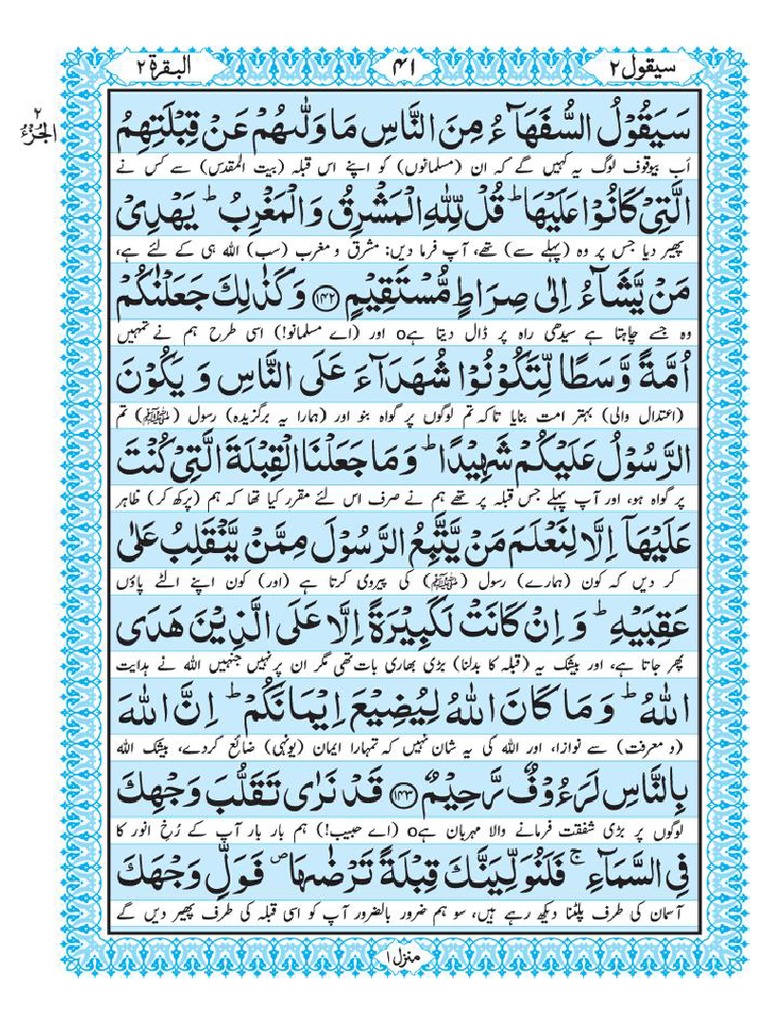 سیقول ٢
٤١
البقرة ٢
٢
الجزء
سَيَقُوْلُ السُّفَهَآءُ مِنَ النَّاسِ مَا وَلّٰىهُمْ عَنْ قِبْلَتِهِمُ
اَب بیوقوف لوگ یہ کہیں گے کہ ان (مسلمانوں) کو اپنے اس قبلہ (بیت المقدس) سے کس نے
الَّتِيْ كَانُوْا عَلَيْهَا ؕ قُلْ لِّلّٰهِ الْمَشْرِقُ وَالْمَغْرِبُ ؕ يَهْدِيْ
پھیر دیا جس پر وہ (پہلے سے) تھے، آپ فرما دیں: مشرق و مغرب (سب) اللہ ہی کے لئے ہے،
مَنْ يَّشَآءُ اِلٰى صِرَاطٍ مُّسْتَقِيْمٍ ﴿۱۴۲﴾ وَكَذٰلِكَ جَعَلْنٰكُمْ
وہ جسے چاہتا ہے سیدھی راہ پر ڈال دیتا ہےo اور (اے مسلمانو!) اسی طرح ہم نے تمہیں
اُمَّةً وَّسَطًا لِّتَكُوْنُوْا شُهَدَآءَ عَلَى النَّاسِ وَ يَكُوْنَ
(اعتدال والی) بہتر امت بنایا تاکہ تم لوگوں پر گواہ بنو اور (ہمارا یہ برگزیدہ) رسول (ﷺ) تم
الرَّسُوْلُ عَلَيْكُمْ شَهِيْدًا ؕ وَمَا جَعَلْنَا الْقِبْلَةَ الَّتِيْ كُنْتَ
پر گواہ ہو، اور آپ پہلے جس قبلہ پر تھے ہم نے صرف اس لئے مقرر کیا تھا کہ ہم (پرکھ کر) ظاہر
عَلَيْهَآ اِلَّا لِنَعْلَمَ مَنْ يَّتَّبِعُ الرَّسُوْلَ مِمَّنْ يَّنْقَلِبُ عَلٰى
کر دیں کہ کون (ہمارے) رسول (ﷺ) کی پیروی کرتا ہے (اور) کون اپنے الٹے پاؤں
عَقِبَيْهِ ؕ وَ اِنْ كَانَتْ لَكَبِيْرَةً اِلَّا عَلَى الَّذِيْنَ هَدَى
پھر جاتا ہے، اور بیشک یہ (قبلہ کا بدلنا) بڑی بھاری بات تھی مگر ان پر نہیں جنہیں اللہ نے ہدایت
اللّٰهُ ؕ وَمَا كَانَ اللّٰهُ لِيُضِيْعَ اِيْمَانَكُمْ ؕ اِنَّ اللّٰهَ
(و معرفت) سے نوازا، اور اللہ کی یہ شان نہیں کہ تمہارا ایمان (یونہی) ضائع کردے، بیشک اللہ
بِالنَّاسِ لَرَءُوْفٌ رَّحِيْمٌ ﴿۱۴۳﴾ قَدْ نَرٰى تَقَلُّبَ وَجْهِكَ
لوگوں پر بڑی شفقت فرمانے والا مہربان ہےo (اے حبیب!) ہم بار بار آپ کے رُخِ انور کا
فِي السَّمَآءِ ۚ فَلَنُوَلِّيَنَّكَ قِبْلَةً تَرْضٰىهَا ۪ فَوَلِّ وَجْهَكَ
آسمان کی طرف پلٹنا دیکھ رہے ہیں، سو ہم ضرور بالضرور آپ کو اسی قبلہ کی طرف پھیر دیں گے
منزل ۱